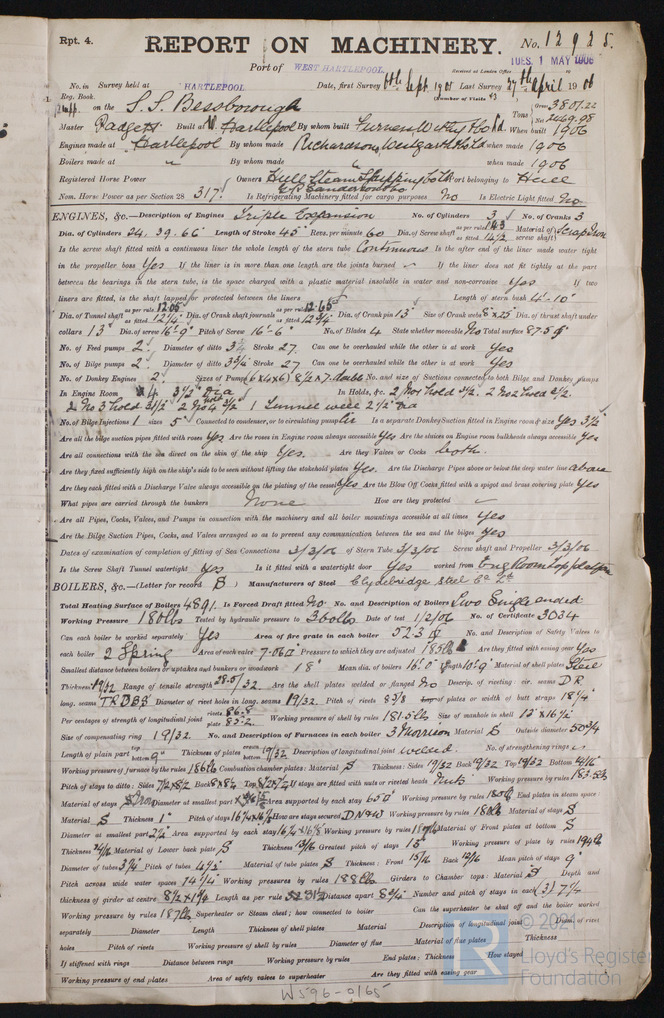 Rpt. 4.
REPORT ON MACHINERY. No. 12925.
Port of WEST HARTLEPOOL
Received at London Office TUES. 1 MAY 1906
No. in Survey held at HARTLEPOOL Date, first Survey 6th Sept 1905 Last Survey 27th April 1906
Reg. Book. (Number of Visits 43
on the S.S. Bessborough Tons Gross 3807.22 Net 2469.98
Master Padgett Built at W. Hartlepool By whom built Furness Withy & Co Ld. When built 1906
Engines made at Hartlepool By whom made Richardsons Westgarth & Co Ld when made 1906
Boilers made at " By whom made " when made 1906
Registered Horse Power Owners Hull Steam Shipping Co Ld Port belonging to Hull
Nom. Horse Power as per Section 28 317. Is Refrigerating Machinery fitted for cargo purposes No Is Electric Light fitted No.
ENGINES, &c.—Description of Engines Triple Expansion No. of Cylinders 3 No. of Cranks 3
Dia. of Cylinders 24. 39. 66" Length of Stroke 45" Revs. per minute 60 Dia. of Screw shaft as per rule as fitted 14 1/2 Material of screw shaft Scrap Iron
Is the screw shaft fitted with a continuous liner the whole length of the stern tube Continuous Is the after end of the liner made water tight
in the propeller boss Yes If the liner is in more than one length are the joints burned If the liner does not fit tightly at the part
between the bearings in the stern tube, is the space charged with a plastic material insoluble in water and non-corrosive Yes If two
liners are fitted, is the shaft lapped or protected between the liners Length of stern bush 4'-10"
Dia. of Tunnel shaft as per rule 12.05 as fitted 12 1/4" Dia. of Crank shaft journals as per rule 12.65 as fitted 12 3/4" Dia. of Crank pin 13" Size of Crank webs 8 x 25" Dia. of thrust shaft under
collars 13" Dia. of screw 16'-9" Pitch of Screw 16'-6" No. of Blades 4 State whether moveable No Total surface 87.5 □'
No. of Feed pumps 2. Diameter of ditto 3 1/4 Stroke 27. Can one be overhauled while the other is at work Yes
No. of Bilge pumps 2. Diameter of ditto 3 3/4 Stroke 27. Can one be overhauled while the other is at work Yes
No. of Donkey Engines 2. Sizes of Pumps (6 x 6 x 6) 8 1/2 x 7. double No. and size of Suctions connected to both Bilge and Donkey pumps
In Engine Room 4 3 1/2" dia In Holds, &c. 2 No 1 hold 3 1/2. 2 No 2 hold 3 1/2.
2 No 3 hold 3 1/2" 2 No 4 3 1/2 1 Tunnel well 2 1/2" dia
No. of Bilge Injections 1 sizes 5" Connected to condenser, or to circulating pump Cir Is a separate Donkey Suction fitted in Engine room & size Yes 3 1/2
Are all the bilge suction pipes fitted with roses Yes Are the roses in Engine room always accessible Yes Are the sluices on Engine room bulkheads always accessible Yes
Are all connections with the sea direct on the skin of the ship Yes. Are they Valves or Cocks both.
Are they fixed sufficiently high on the ship's side to be seen without lifting the stokehold plates Yes. Are the Discharge Pipes above or below the deep water line above
Are they each fitted with a Discharge Valve always accessible on the plating of the vessel Yes Are the Blow Off Cocks fitted with a spigot and brass covering plate Yes
What pipes are carried through the bunkers None How are they protected
Are all Pipes, Cocks, Valves, and Pumps in connection with the machinery and all boiler mountings accessible at all times Yes
Are the Bilge Suction Pipes, Cocks, and Valves arranged so as to prevent any communication between the sea and the bilges Yes
Dates of examination of completion of fitting of Sea Connections 3/3/06 of Stern Tube 3/3/06 Screw shaft and Propeller 3/3/06
Is the Screw Shaft Tunnel watertight Yes Is it fitted with a watertight door Yes worked from Eng Room top platform
BOILERS, &c.—(Letter for record S) Manufacturers of Steel Clydebridge Steel Co Ld
Total Heating Surface of Boilers 4891. Is Forced Draft fitted No. No. and Description of Boilers Two Single ended
Working Pressure 180 lbs Tested by hydraulic pressure to 360 lbs Date of test 1/2/06 No. of Certificate 3034
Can each boiler be worked separately Yes Area of fire grate in each boiler 52.3 □' No. and Description of Safety Valves to
each boiler 2 Spring Area of each valve 7.06 □" Pressure to which they are adjusted 185 lbs Are they fitted with easing gear Yes
Smallest distance between boilers or uptakes and bunkers or woodwork 18" Mean dia. of boilers 16'.0" Length 10'.9" Material of shell plates Steel
Thickness 19/32 Range of tensile strength 28.5/32 Are the shell plates welded or flanged No Descrip. of riveting: cir. seams D R
long. seams TRDBS Diameter of rivet holes in long. seams 19/32. Pitch of rivets 8 3/8 Lap of plates or width of butt straps 18 1/4"
Per centages of strength of longitudinal joint rivets 86.8 plate 85.2 Working pressure of shell by rules 181.5 lbs Size of manhole in shell 12" x 16 1/2"
Size of compensating ring 19/32 No. and Description of Furnaces in each boiler 3 Morrison Material S Outside diameter 50 3/4
Length of plain part top bottom 9" Thickness of plates crown bottom 19/32 Description of longitudinal joint welded. No. of strengthening rings
Working pressure of furnace by the rules 186 lb Combustion chamber plates: Material S Thickness: Sides 19/32 Back 19/32 Top 19/32 Bottom
Pitch of stays to ditto: Sides 7 1/2 x 8 1/2 Back 8 x 8 1/4 Top If stays are fitted with nuts or riveted heads Nuts Working pressure by rules 183.5 lbs
Material of stays Diameter at smallest part Area supported by each stay 65 □" Working pressure by rules 180 lb End plates in steam space:
Material S Thickness 1" Pitch of stays How are stays secured D N & W Working pressure by rules 180 lb Material of stays S
Diameter at smallest part 2 1/2" Area supported by each stay Working pressure by rules Material of Front plates at bottom S
Thickness Material of Lower back plate S Thickness 13/16 Greatest pitch of stays 15" Working pressure of plate by rules 194 lb
Diameter of tubes 3 1/4" Pitch of tubes 4 1/2 Material of tube plates S Thickness: Front 15/16 Back Mean pitch of stays 9"
Pitch across wide water spaces 14 1/4" Working pressures by rules 188 lbs Girders to Chamber tops: Material S Depth and
thickness of girder at centre Length as per rule Distance apart 8 3/4" Number and pitch of stays in each (3) 7 1/2
Working pressure by rules 187 lb Superheater or Steam chest; how connected to boiler Can the superheater be shut off and the boiler worked
separately Diameter Length Thickness of shell plates Material Description of longitudinal joint Diam. of rivet
holes Pitch of rivets Working pressure of shell by rules Diameter of flue Material of flue plates Thickness
If stiffened with rings Distance between rings Working pressure by rules End plates: Thickness How stayed
Working pressure of end plates Area of safety valves to superheater Are they fitted with easing gear
W596-0165
© 2021
Lloyd's Register
Foundation